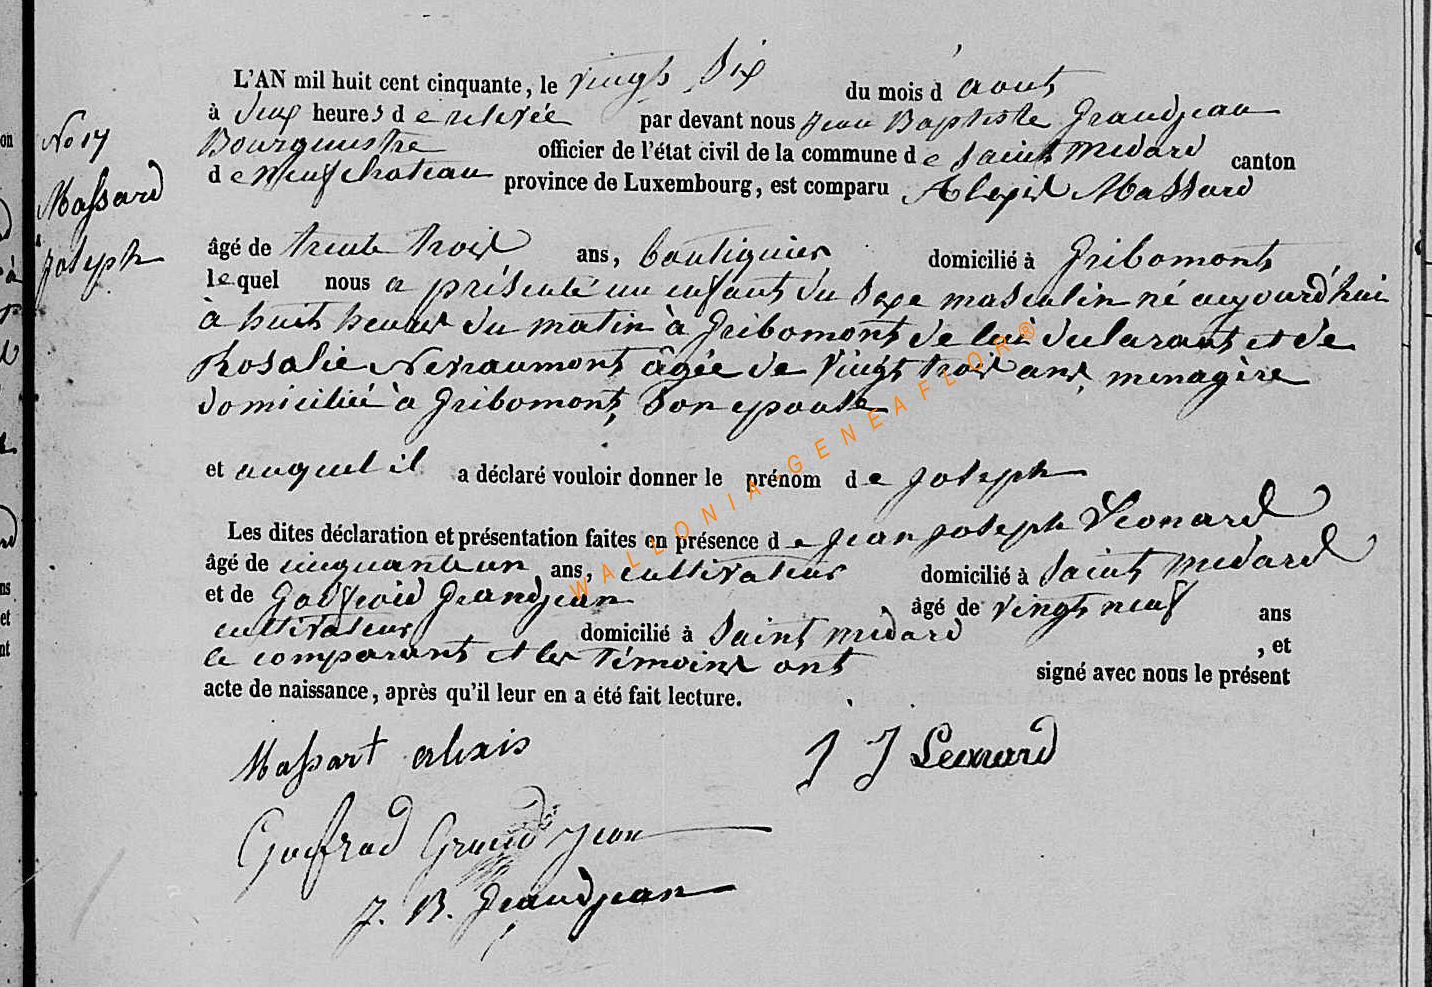 L'AN mil huit cent cinquante, le vingt Six du mois d'aout
à deux heures de relevée par devant nous Jean Baptiste Grandjean
Bourgmestre officier de l'état civil de la commune de Saint Medard canton
de Neufchateau province de Luxembourg, est comparu Alexis Massard
No 17
Massard
Joseph
âgé de trente trois ans, boutiquier domicilié à Gribomont
lequel nous a présenté un enfant du sexe masculin né aujourd'hui
à huit heures du matin à Gribomont de lui déclarant et de
Rosalie Nevraumont âgée de vingt trois ans, menagère
domiciliée à Gribomont, Son epouse
et auquel il a déclaré vouloir donner le prénom de Joseph
Les dites déclaration et présentation faites en présence de Jean Joseph Léonard
âgé de cinquante un ans, cultivateur domicilié à Saint Medard
et de Godfroid Grandjean, âgé de vingt neuf ans
cultivateur domicilié à Saint Medard, et
le comparant et les Témoins ont signé avec nous le présent
acte de naissance, après qu'il leur en a été fait lecture.
Massart alexis J J Leonard
Godfroid Grand Jean
J. B. Grandjean
WALLONIA-GENEAFLOR®